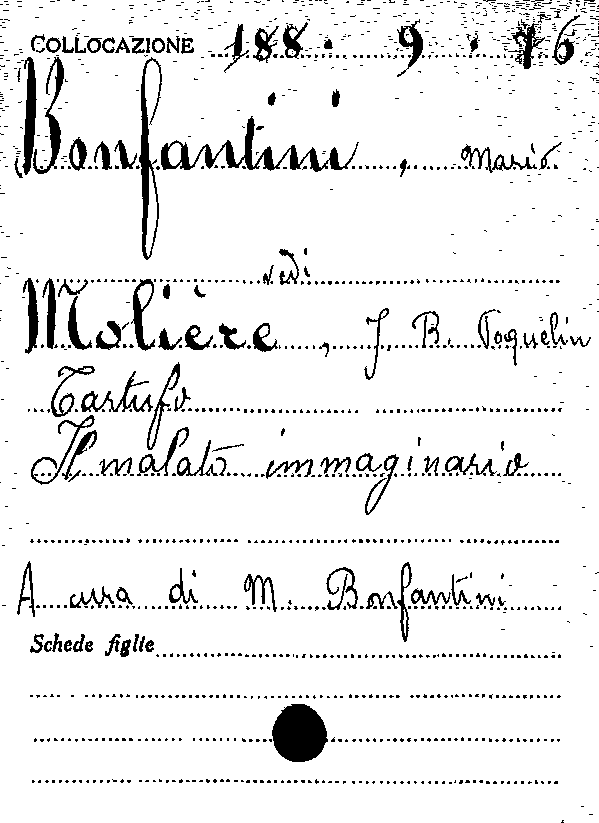 COLLOCAZIONE 188. 9. 76
Bonfantini, Mario
vedi
Molière, J. B. Poquelin
Tartufo
Il malato immaginario
A cura di M. Bonfantini
Schede figlie